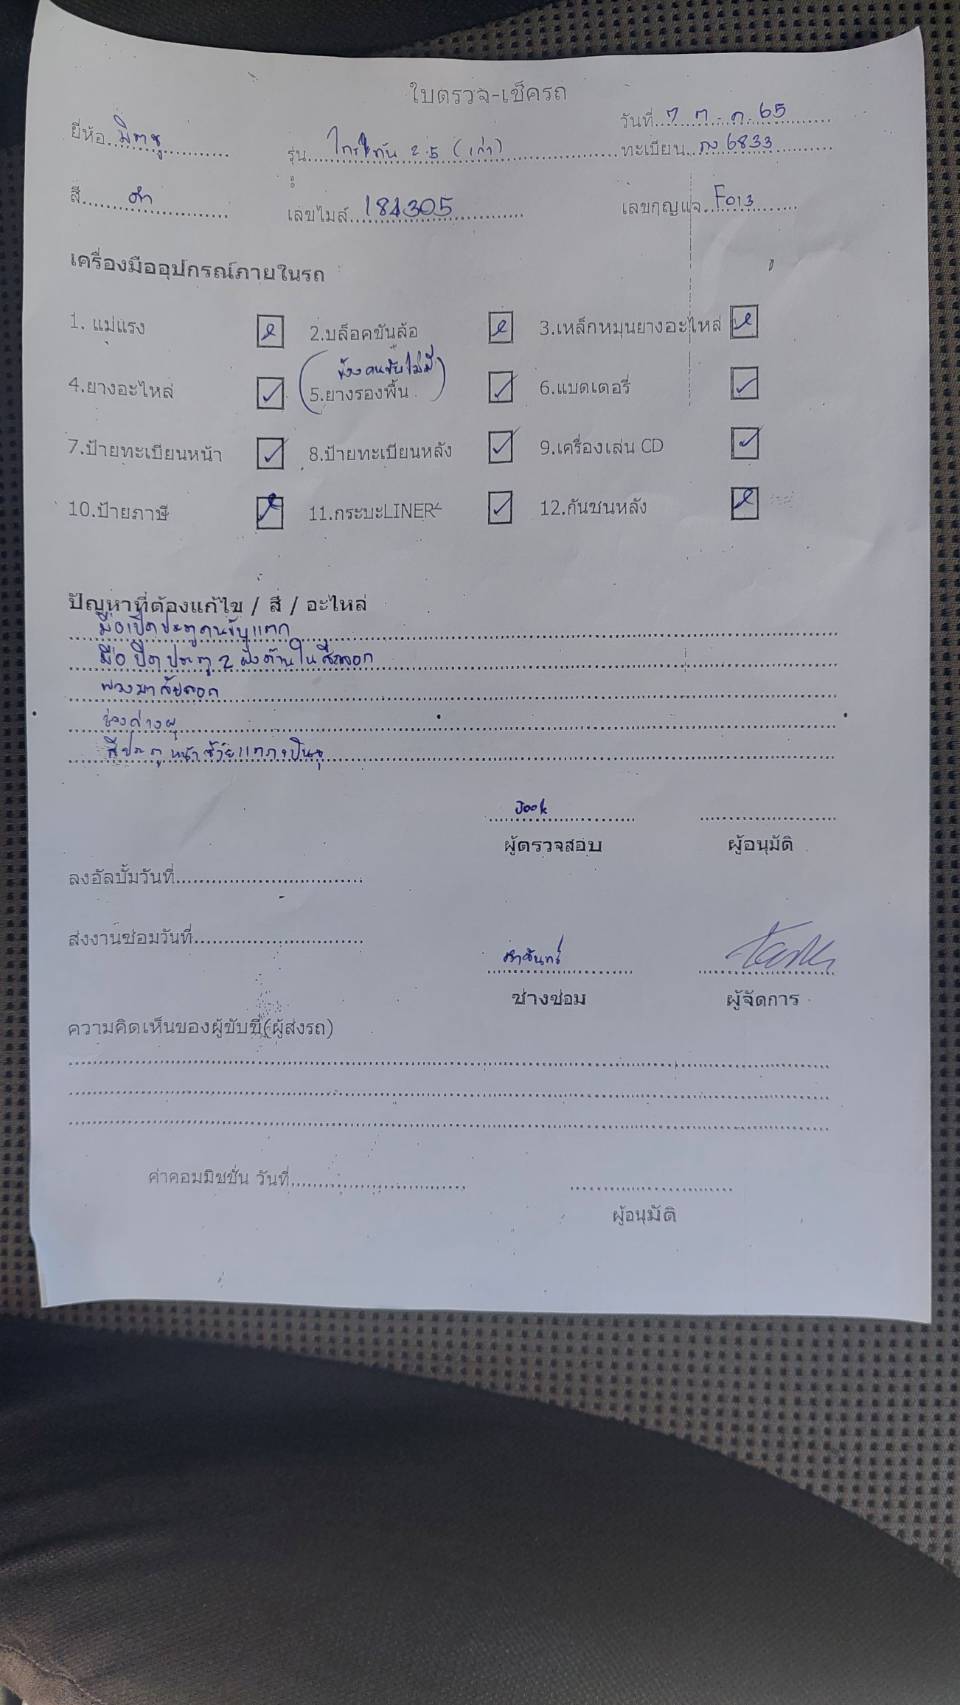 ใบตรวจ-เช็ครถ
ยี่ห้อ มิตซู รุ่น ไทรทัน 2.5 (เก่า) วันที่ 7 ก.ค 65
ทะเบียน 6833
สี ดำ เลขไมล์ 184305 เลขกุญแจ F013
เครื่องมืออุปกรณ์ภายในรถ
1. แม่แรง 2.บล็อคขันล้อ 3.เหล็กหมุนยางอะไหล่
(ข้างคนขับไม่มี)
4.ยางอะไหล่ ✓ 5.ยางรองพื้น ✓ 6.แบตเตอรี่ ✓
7.ป้ายทะเบียนหน้า ✓ 8.ป้ายทะเบียนหลัง ✓ 9.เครื่องเล่น CD ✓
10.ป้ายภาษี 11.กระบะLINER ✓ 12.กันชนหลัง
ปัญหาที่ต้องแก้ไข / สี / อะไหล่
มือเปิดประตูคนขับแตก
มือปิดประตู 2 ฝั่งด้านในสีลอก
พวงมาลัยลอก
ช่องล่างผุ
สีประตูหน้าซ้าย
Jook
ผู้ตรวจสอบ ผู้อนุมัติ
ลงอัลบั้มวันที่
ส่งงานซ่อมวันที่
คำจันทร์
ช่างซ่อม ผู้จัดการ
ความคิดเห็นของผู้ขับขี่(ผู้ส่งรถ)
ค่าคอมมิชชั่น วันที่
ผู้อนุมัติ